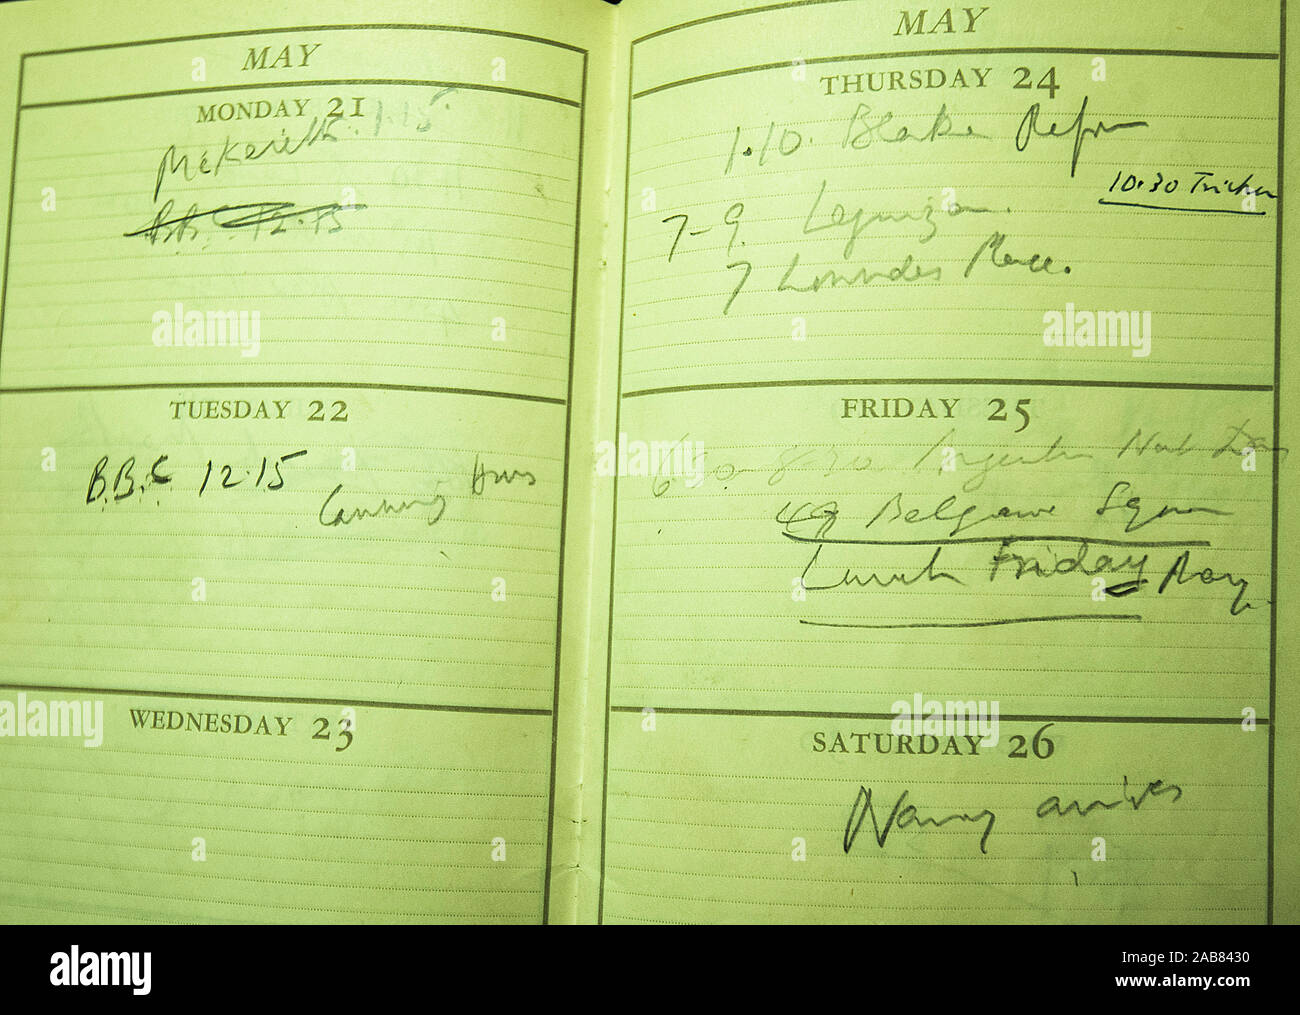 MAY
MONDAY 21
1.15
B.B.C 12.15
TUESDAY 22
B.B.C 12.15
Canning House
WEDNESDAY 23
MAY
THURSDAY 24
1.10. Blake
10.30
7-9.
7 Lowndes Place.
FRIDAY 25
6.30-8.30 Argentine Nat Day
49 Belgrave Square
Lunch Friday Rory
SATURDAY 26
Nancy arrives
alamy
alamy
alamy
alamy
alamy
a
a
a
a
a
a
alamy
Image ID: 2AB8430
www.alamy.com